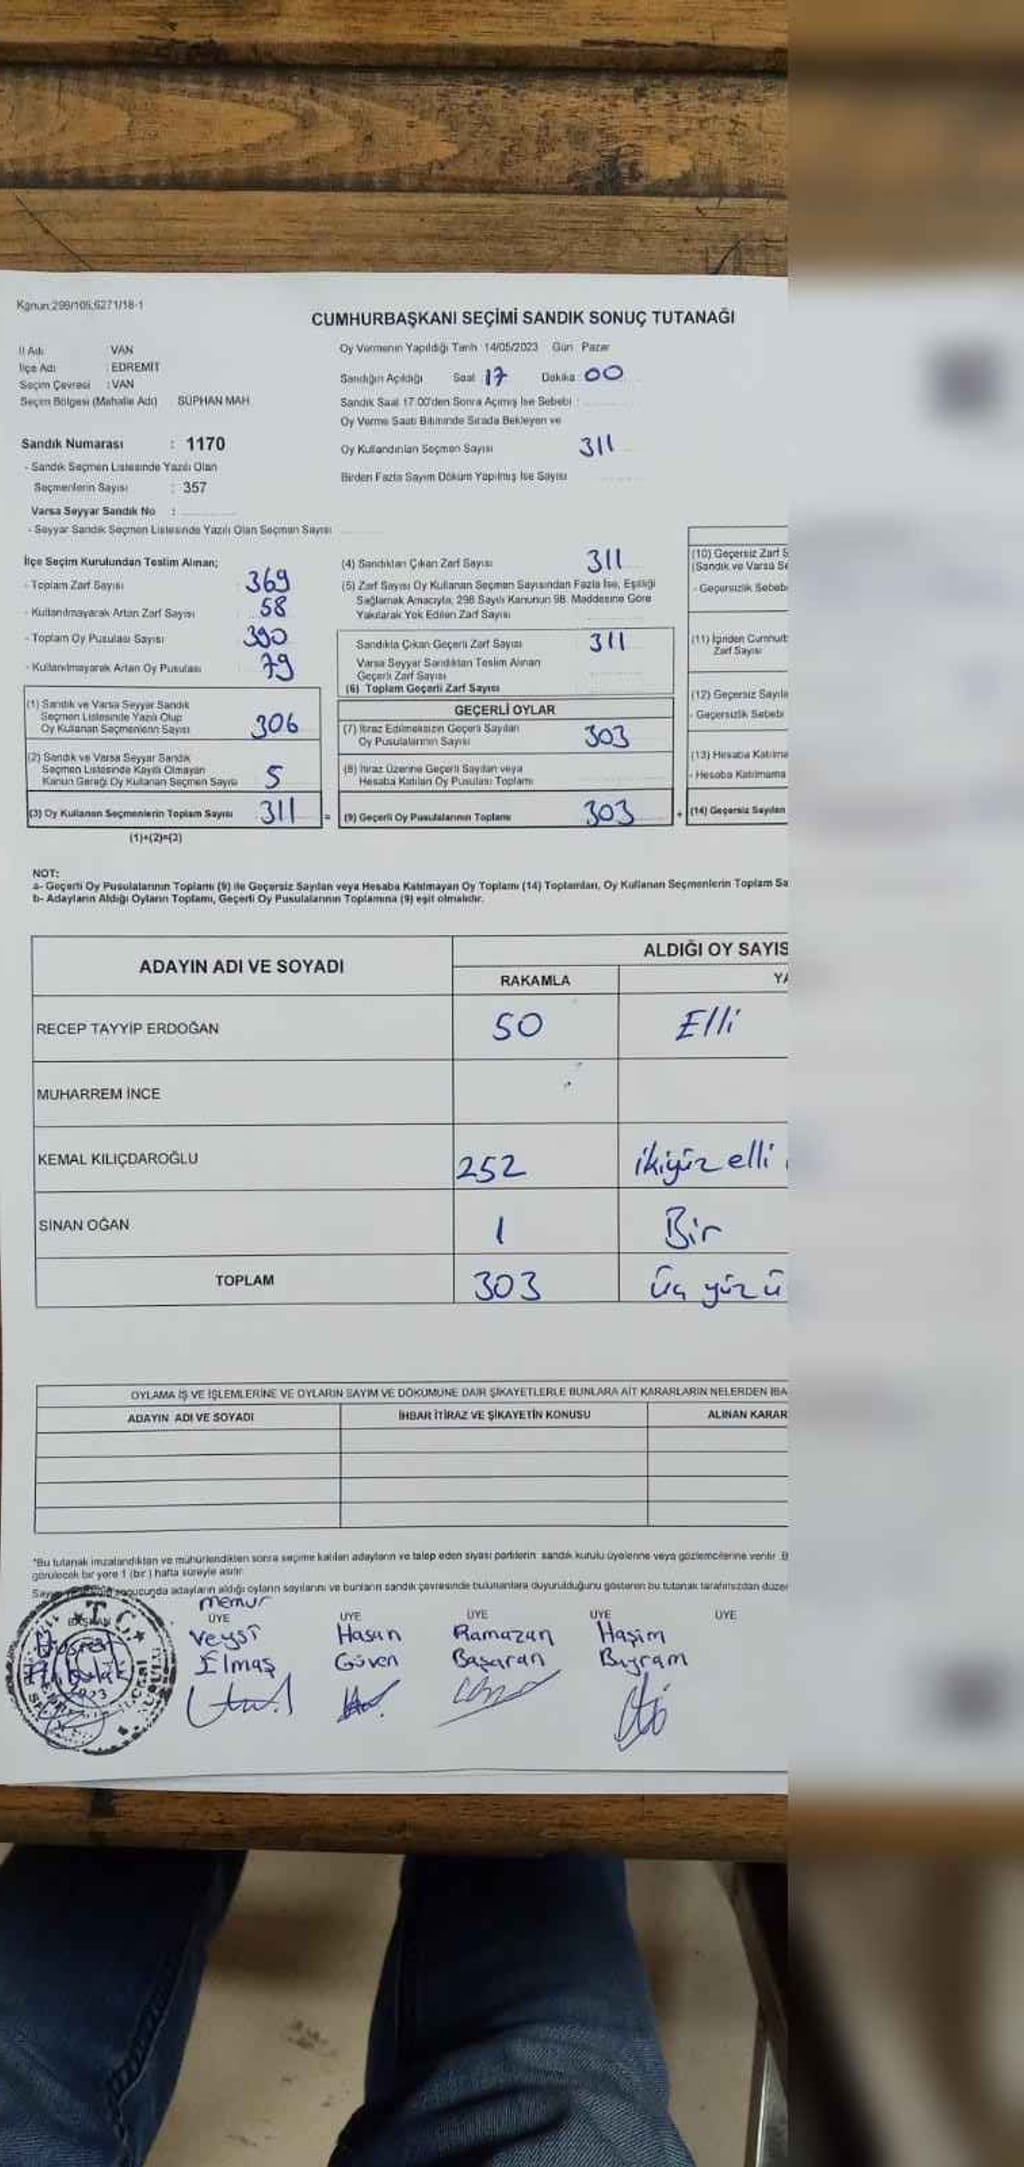 Kanun:298/105,6271/18-1
CUMHURBAŞKANI SEÇİMİ SANDIK SONUÇ TUTANAĞI
İl Adı VAN
İlçe Adı : EDREMİT
Seçim Çevresi : VAN
Seçim Bölgesi (Mahalle Adı) SÜPHAN MAH.
Oy Vermenin Yapıldığı Tarih 14/05/2023 Gün Pazar
Sandığın Açıldığı Saat 17 Dakika 00
Sandık Saat 17.00'den Sonra Açımış İse Sebebi :
Oy Verme Saati Bitiminde Sırada Bekleyen ve
Oy Kullandırılan Seçmen Sayısı 311
Birden Fazla Sayım Döküm Yapılmış İse Sayısı
Sandık Numarası : 1170
- Sandık Seçmen Listesinde Yazılı Olan
Seçmenlerin Sayısı : 357
Varsa Seyyar Sandık No :
- Seyyar Sandık Seçmen Listesinde Yazılı Olan Seçmen Sayısı
İlçe Seçim Kurulundan Teslim Alınan;
- Toplam Zarf Sayısı 369
- Kullanılmayarak Artan Zarf Sayısı 58
- Toplam Oy Pusulası Sayısı 390
- Kullanılmayarak Artan Oy Pusulası 79
(1) Sandık ve Varsa Seyyar Sandık
Seçmen Listesinde Yazılı Olup
Oy Kullanan Seçmenlerin Sayısı 306
(2) Sandık ve Varsa Seyyar Sandık
Seçmen Listesinde Kayıtlı Olmayan
Kanun Gereği Oy Kullanan Seçmen Sayısı 5
(3) Oy Kullanan Seçmenlerin Toplam Sayısı 311 =
(1)+(2)=(3)
(4) Sandıktan Çıkan Zarf Sayısı 311
(5) Zarf Sayısı Oy Kullanan Seçmen Sayısından Fazla İse, Eşitliği
Sağlamak Amacıyla, 298 Sayılı Kanunun 98. Maddesine Göre
Yakılarak Yok Edilen Zarf Sayısı
Sandıkta Çıkan Geçerli Zarf Sayısı 311
Varsa Seyyar Sandıktan Teslim Alınan
Geçerli Zarf Sayısı
(6) Toplam Geçerli Zarf Sayısı
GEÇERLİ OYLAR
(7) İtiraz Edilmeksizin Geçerli Sayılan
Oy Pusulalarının Sayısı 303
(8) İtiraz Üzerine Geçerli Sayılan veya
Hesaba Katılan Oy Pusulası Toplamı
(9) Geçerli Oy Pusulalarının Toplamı 303 +
(10) Geçersiz Zarf S
(Sandık ve Varsa Se
- Geçersizlik Sebeb
(11) İçinden Cumhurb
Zarf Sayısı
(12) Geçersiz Sayıla
- Geçersizlik Sebebi
(13) Hesaba Katılma
- Hesaba Katılmama
(14) Geçersiz Sayılan
NOT:
a- Geçerli Oy Pusulalarının Toplamı (9) ile Geçersiz Sayılan veya Hesaba Katılmayan Oy Toplamı (14) Toplamları, Oy Kullanan Seçmenlerin Toplam Sa
b- Adayların Aldığı Oyların Toplamı, Geçerli Oy Pusulalarının Toplamına (9) eşit olmalıdır.
ADAYIN ADI VE SOYADI
ALDIĞI OY SAYIS
RAKAMLA YA
RECEP TAYYİP ERDOĞAN 50 Elli
MUHARREM İNCE
KEMAL KILIÇDAROĞLU 252 ikiyüz elli
SİNAN OĞAN 1 Bir
TOPLAM 303 Üç yüz ü
OYLAMA İŞ VE İŞLEMLERİNE VE OYLARIN SAYIM VE DÖKÜMÜNE DAİR ŞİKAYETLERLE BUNLARA AİT KARARLARIN NELERDEN İBA
ADAYIN ADI VE SOYADI İHBAR İTİRAZ VE ŞİKAYETİN KONUSU ALINAN KARAR
*Bu tutanak imzalandıktan ve mühürlendikten sonra seçime katılan adayların ve talep eden siyasi partilerin sandık kurulu üyelerine veya gözlemcilerine verilir. B
görülecek bir yere 1 (bir) hafta süreyle asılır.
sonucunda adayların aldığı oyların sayılarını ve bunların sandık çevresinde bulunanlara duyurulduğunu gösteren bu tutanak tarafımızdan düzen
BAŞKAN
memur
ÜYE ÜYE ÜYE ÜYE ÜYE
Veysi Hasan Ramazan Haşim
Elmas Güven Başaran Bayram
T.C.